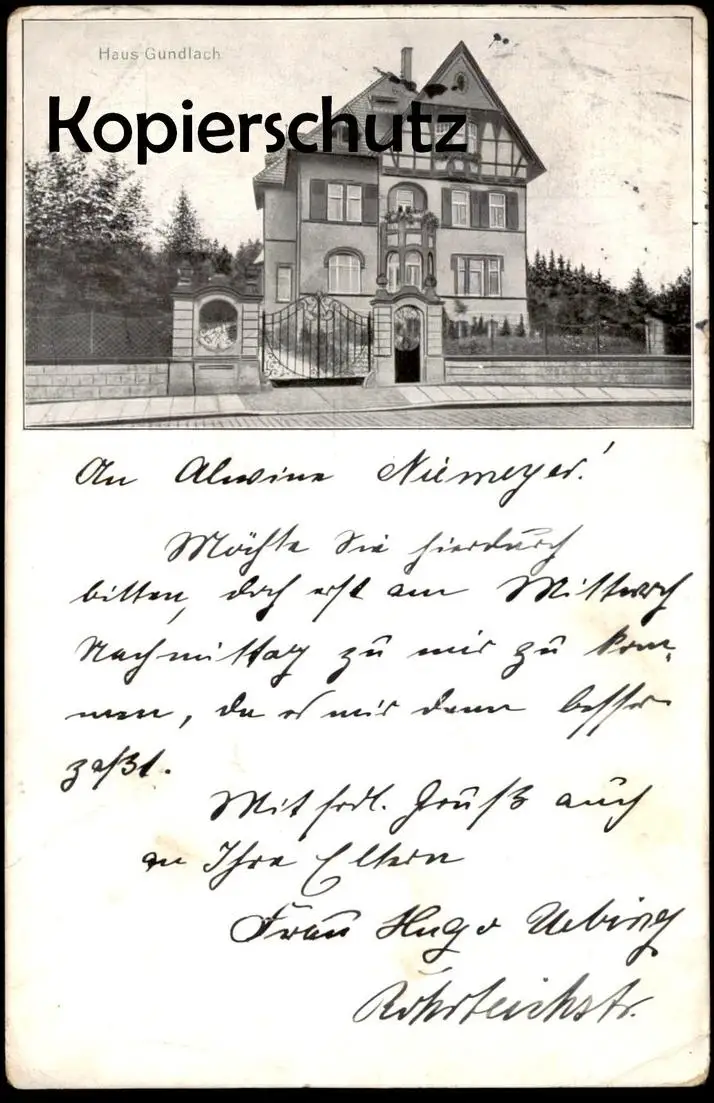 Haus Gundlach
Kopierschutz
An Alwine Niemeyer!
Möchte Sie hierdurch
bitten, doch erst am Mittwoch
Nachmittag zu mir zu kom-
men, da es mir dann besser
paßt.
Mit frdl. Gruß auch
an Ihre Eltern
Frau Hugo Uebing
Rohrteichstr.